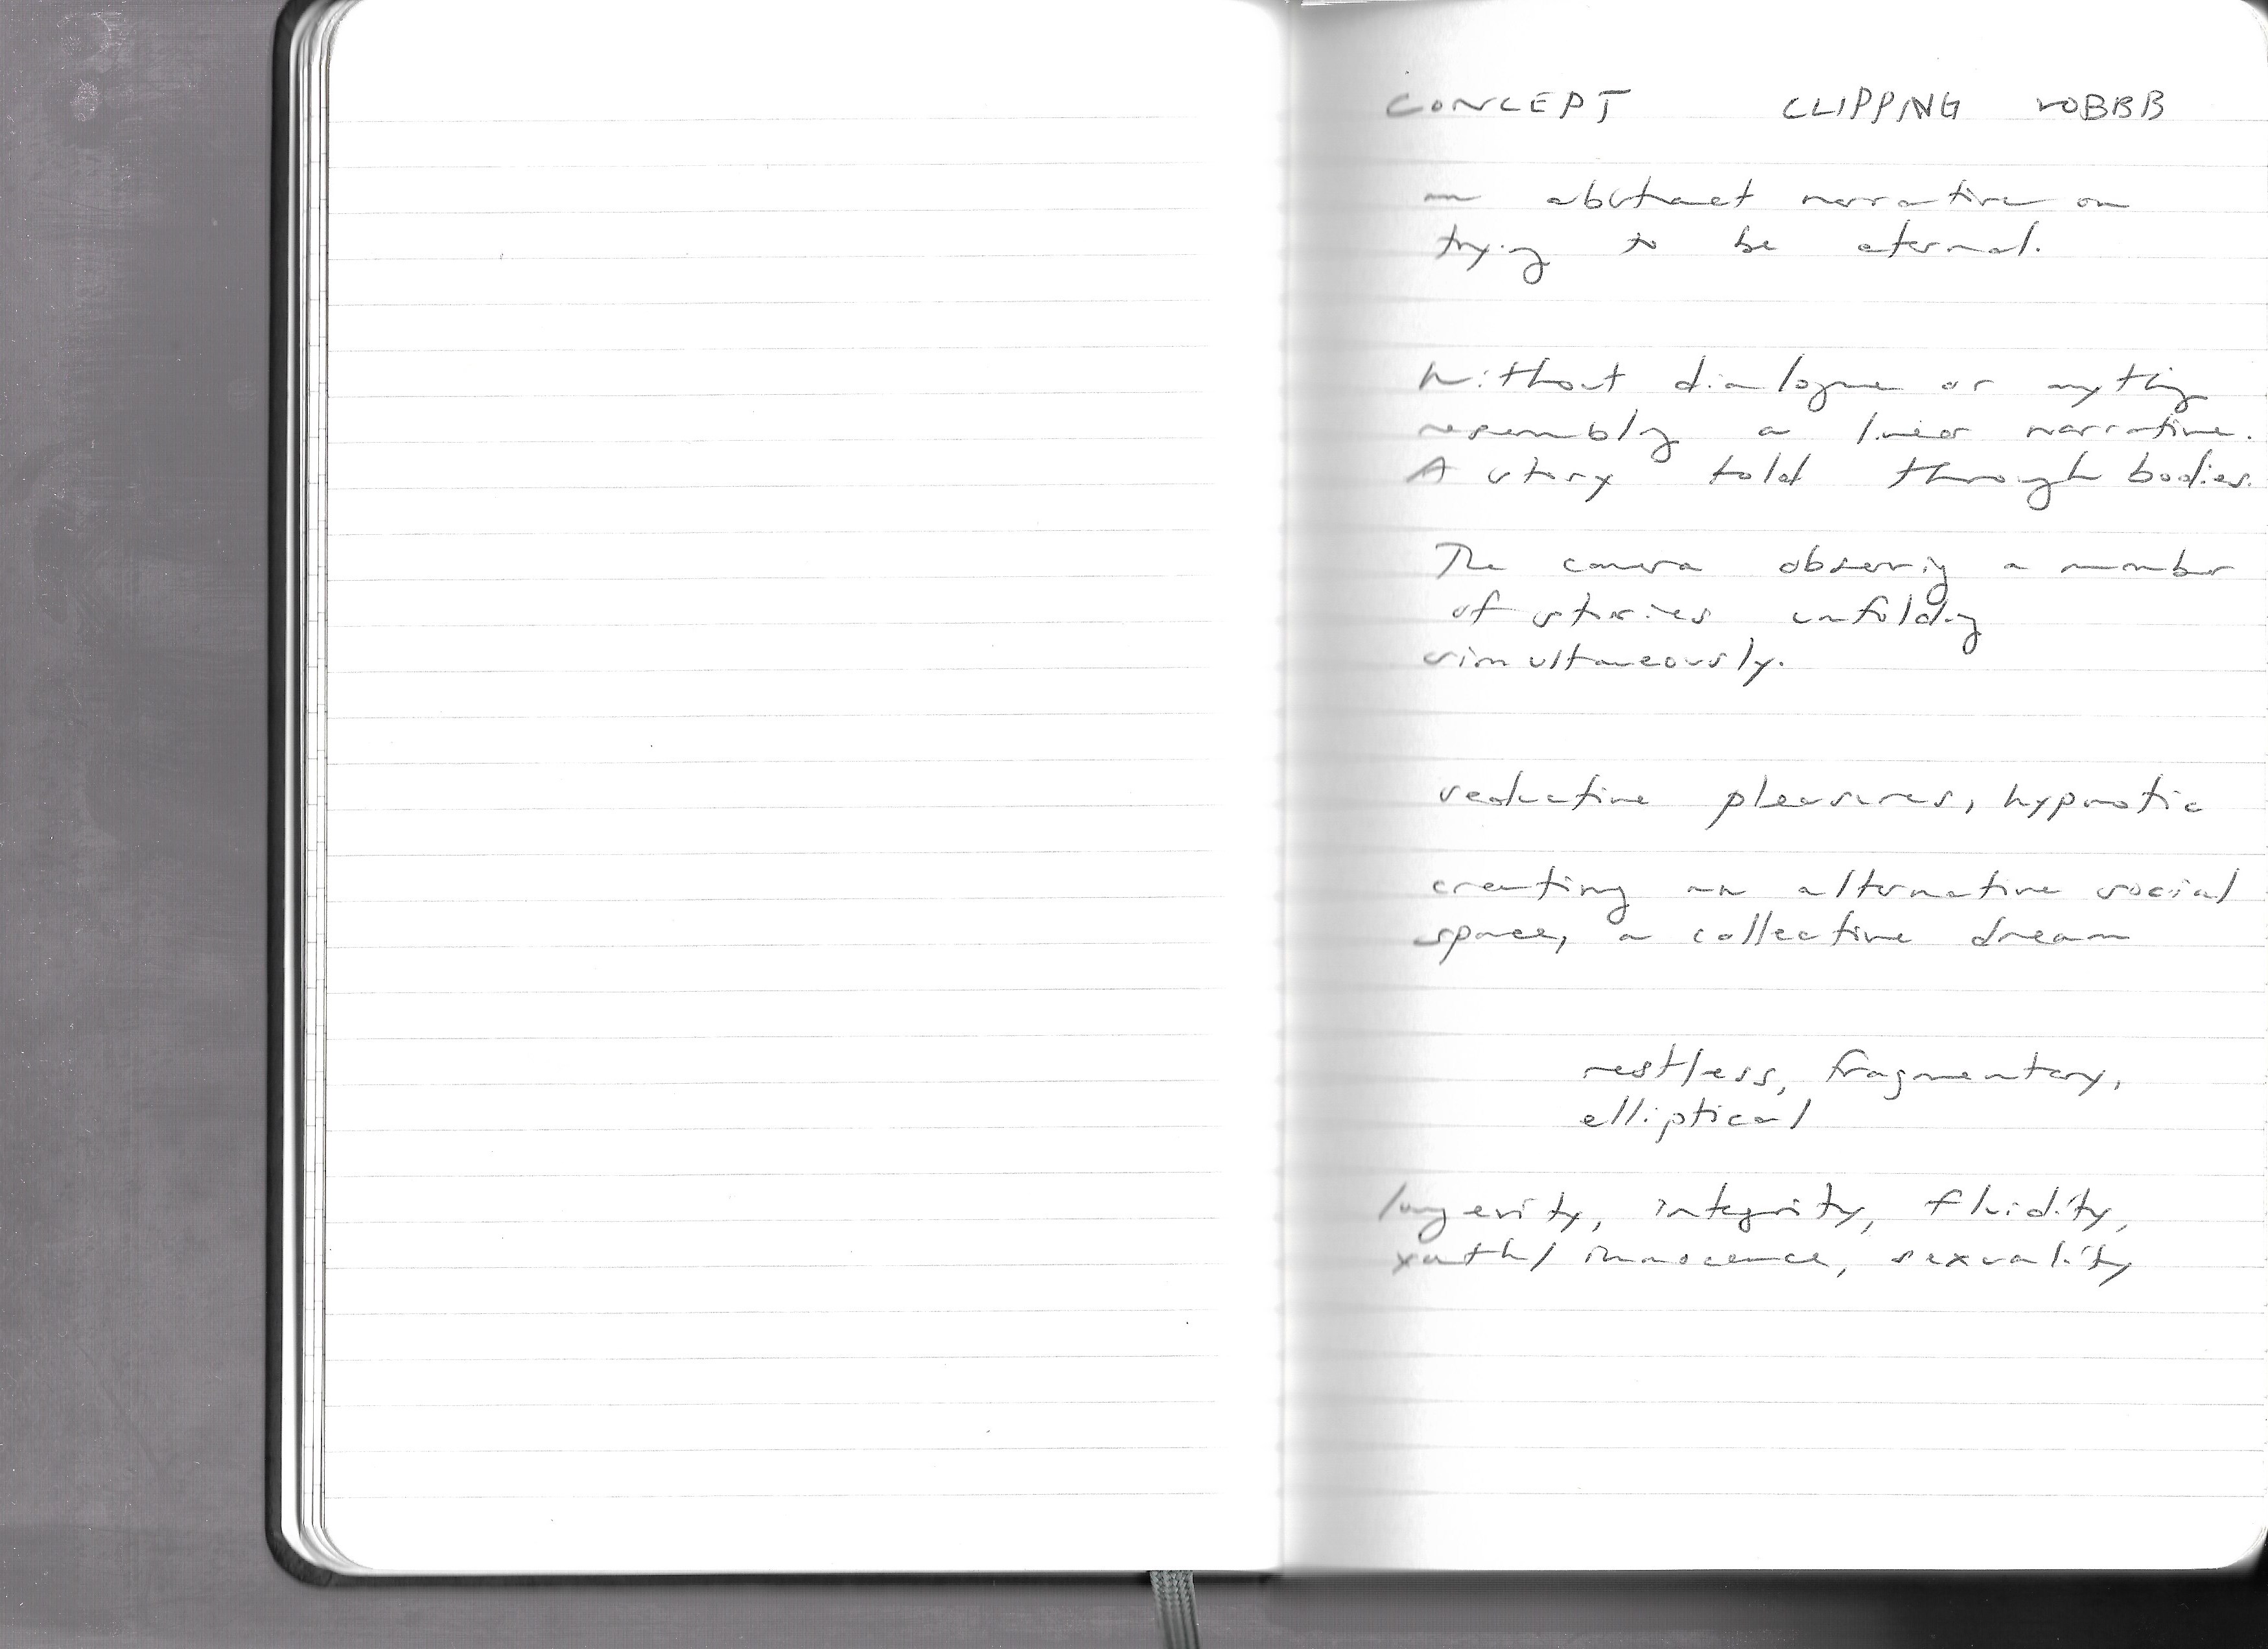 CONCEPT CLIPPING
an abstract narrative on
trying to be eternal.
Without dialogue or anything
resembling a linear narrative.
A story told through bodies.
The camera observing a number
of stories unfolding
simultaneously.
seductive pleasures, hypnotic
creating an alternative social
space, a collective dream
restless, fragmentary,
elliptical
longevity, integrity, fluidity,
youth/innocence, sexuality